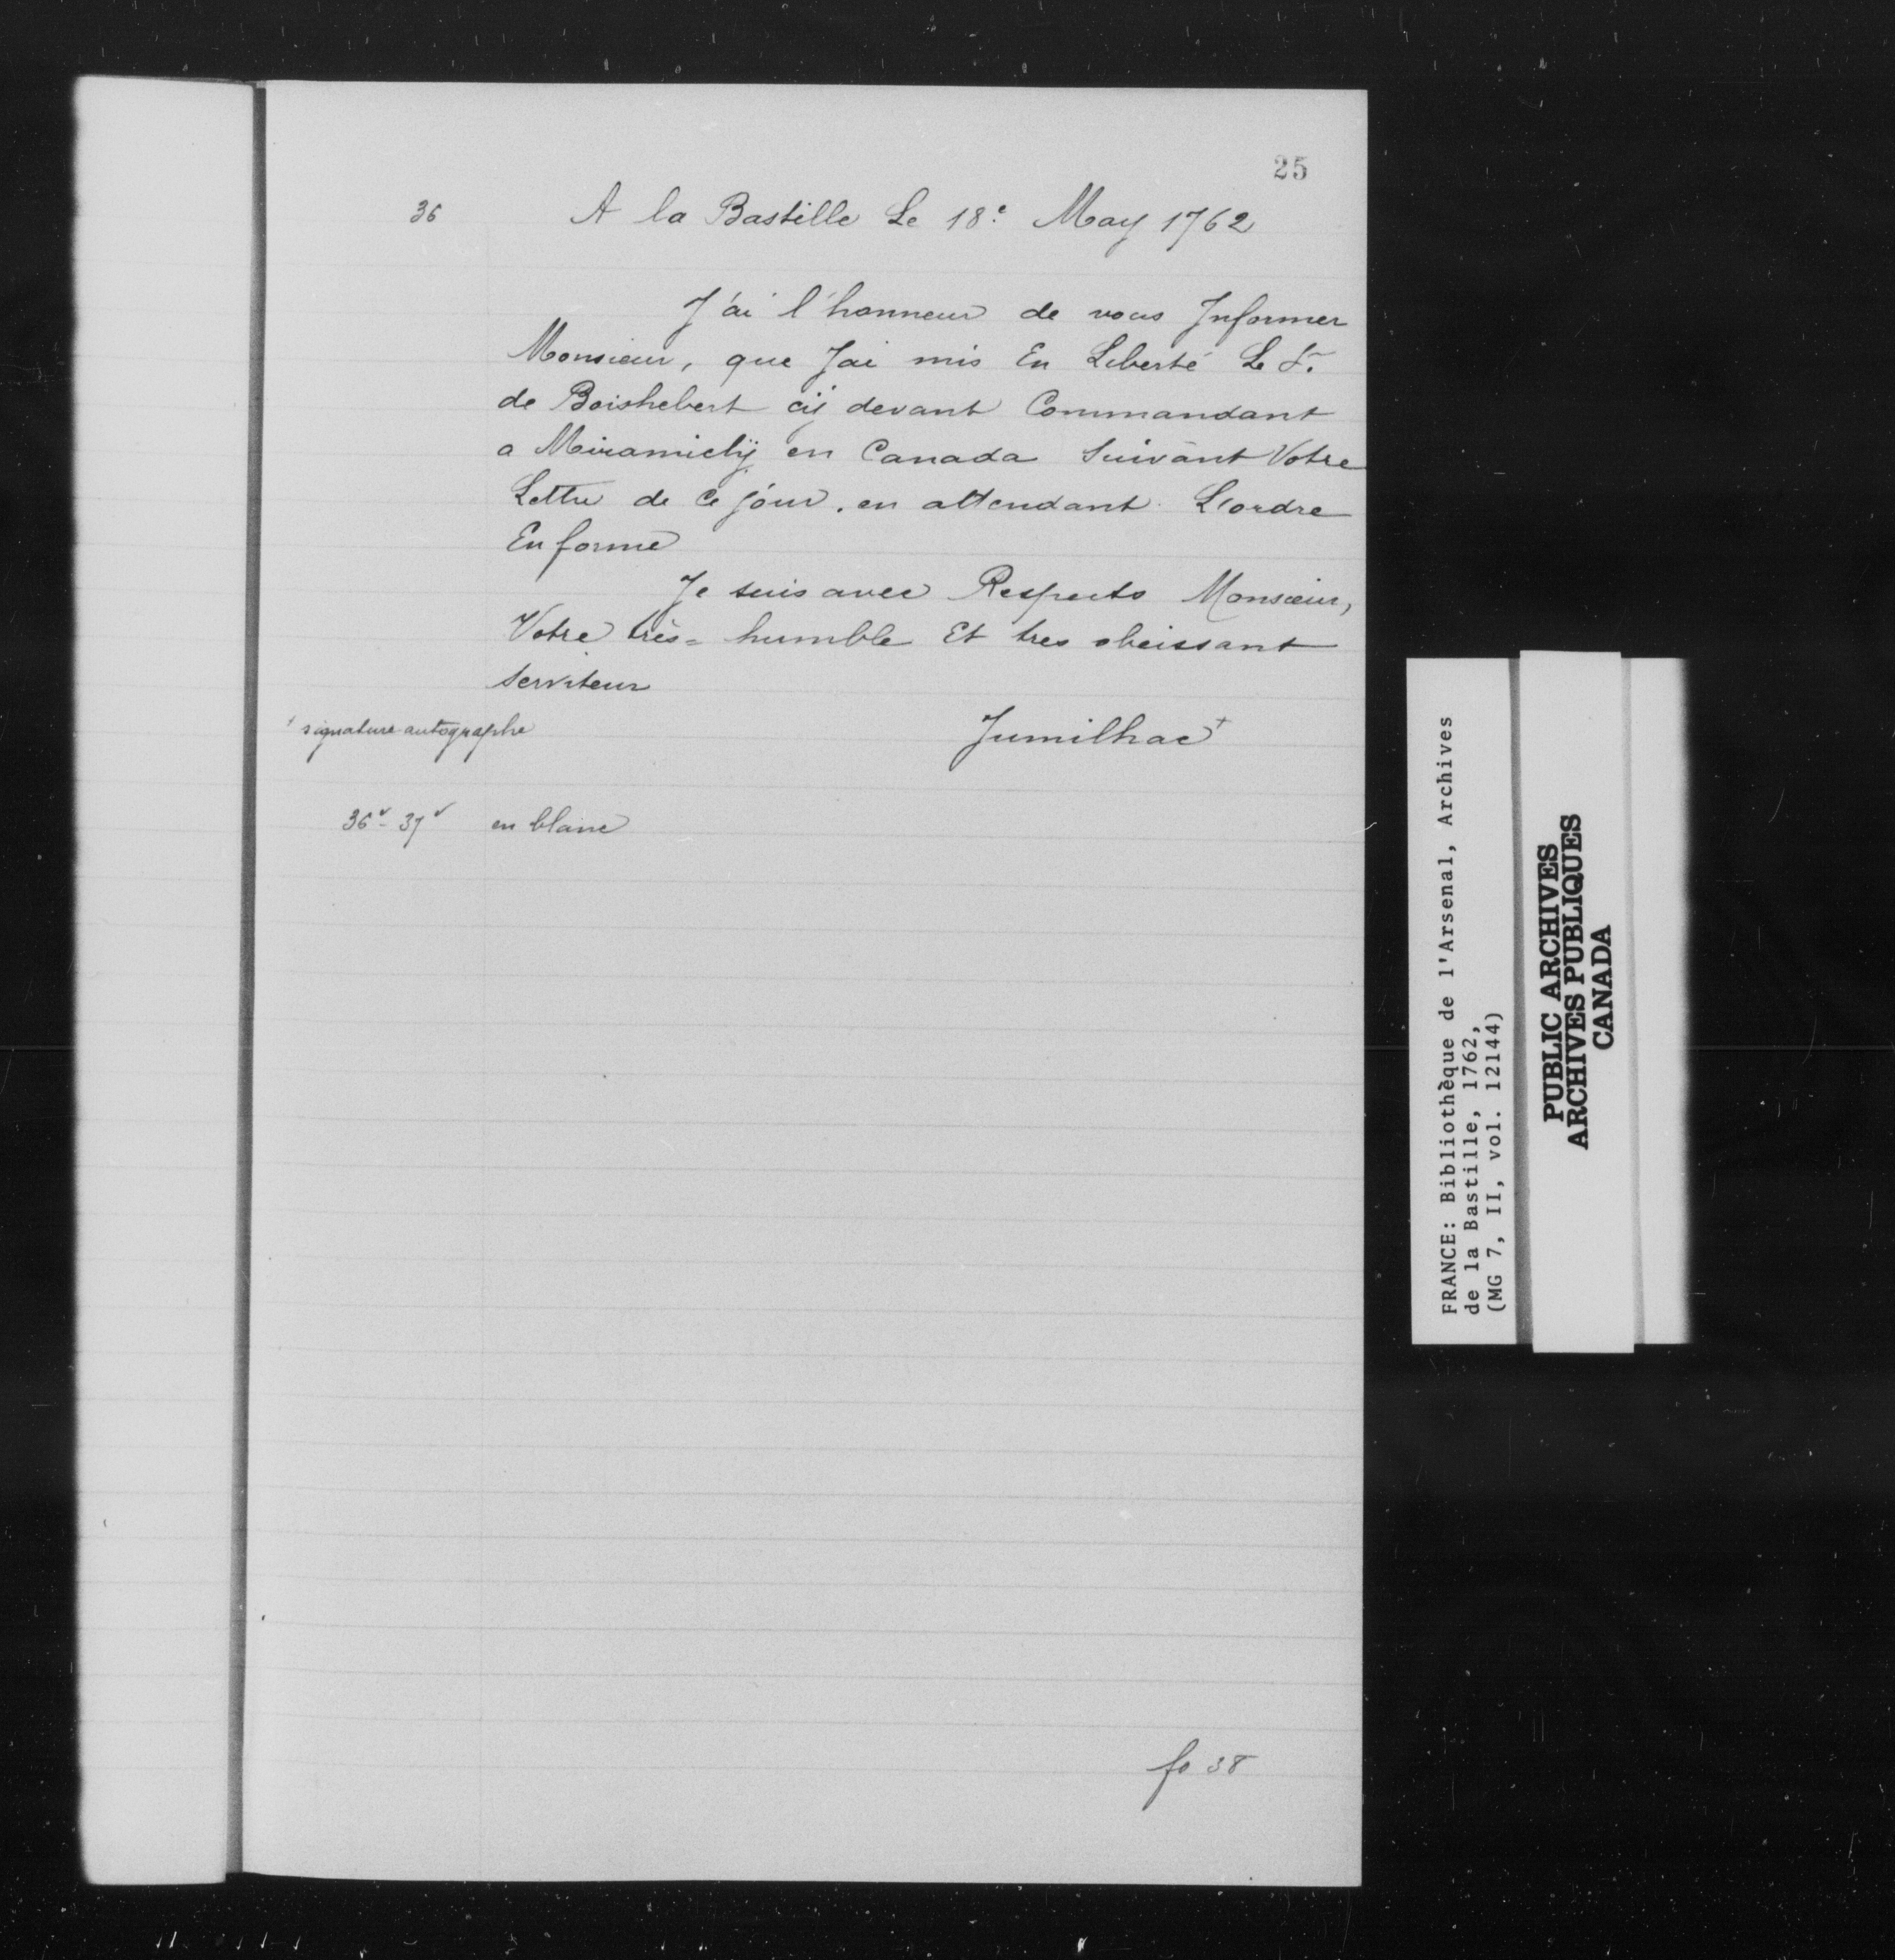 25
36 A la Bastille Le 18.e May 1762
J'ai l'honneur de vous Informer
Monsieur, que Jai mis En Liberté Le S.
de Boishebert cij devant Commandant
a Miramichÿ en Canada Suivant Votre
Lettre de Ce jour. en attendant L'ordre
En forme
Je suis avec Respects Monsieur,
Votre très= humble Et tres obeissant
Serviteur
+ signature autographe Jumilhac +
36v - 37v en blanc
fo 38
FRANCE: Bibliothèque de l'Arsenal, Archives
de la Bastille, 1762,
(MG 7, II, vol. 12144)
PUBLIC ARCHIVES
ARCHIVES PUBLIQUES
CANADA